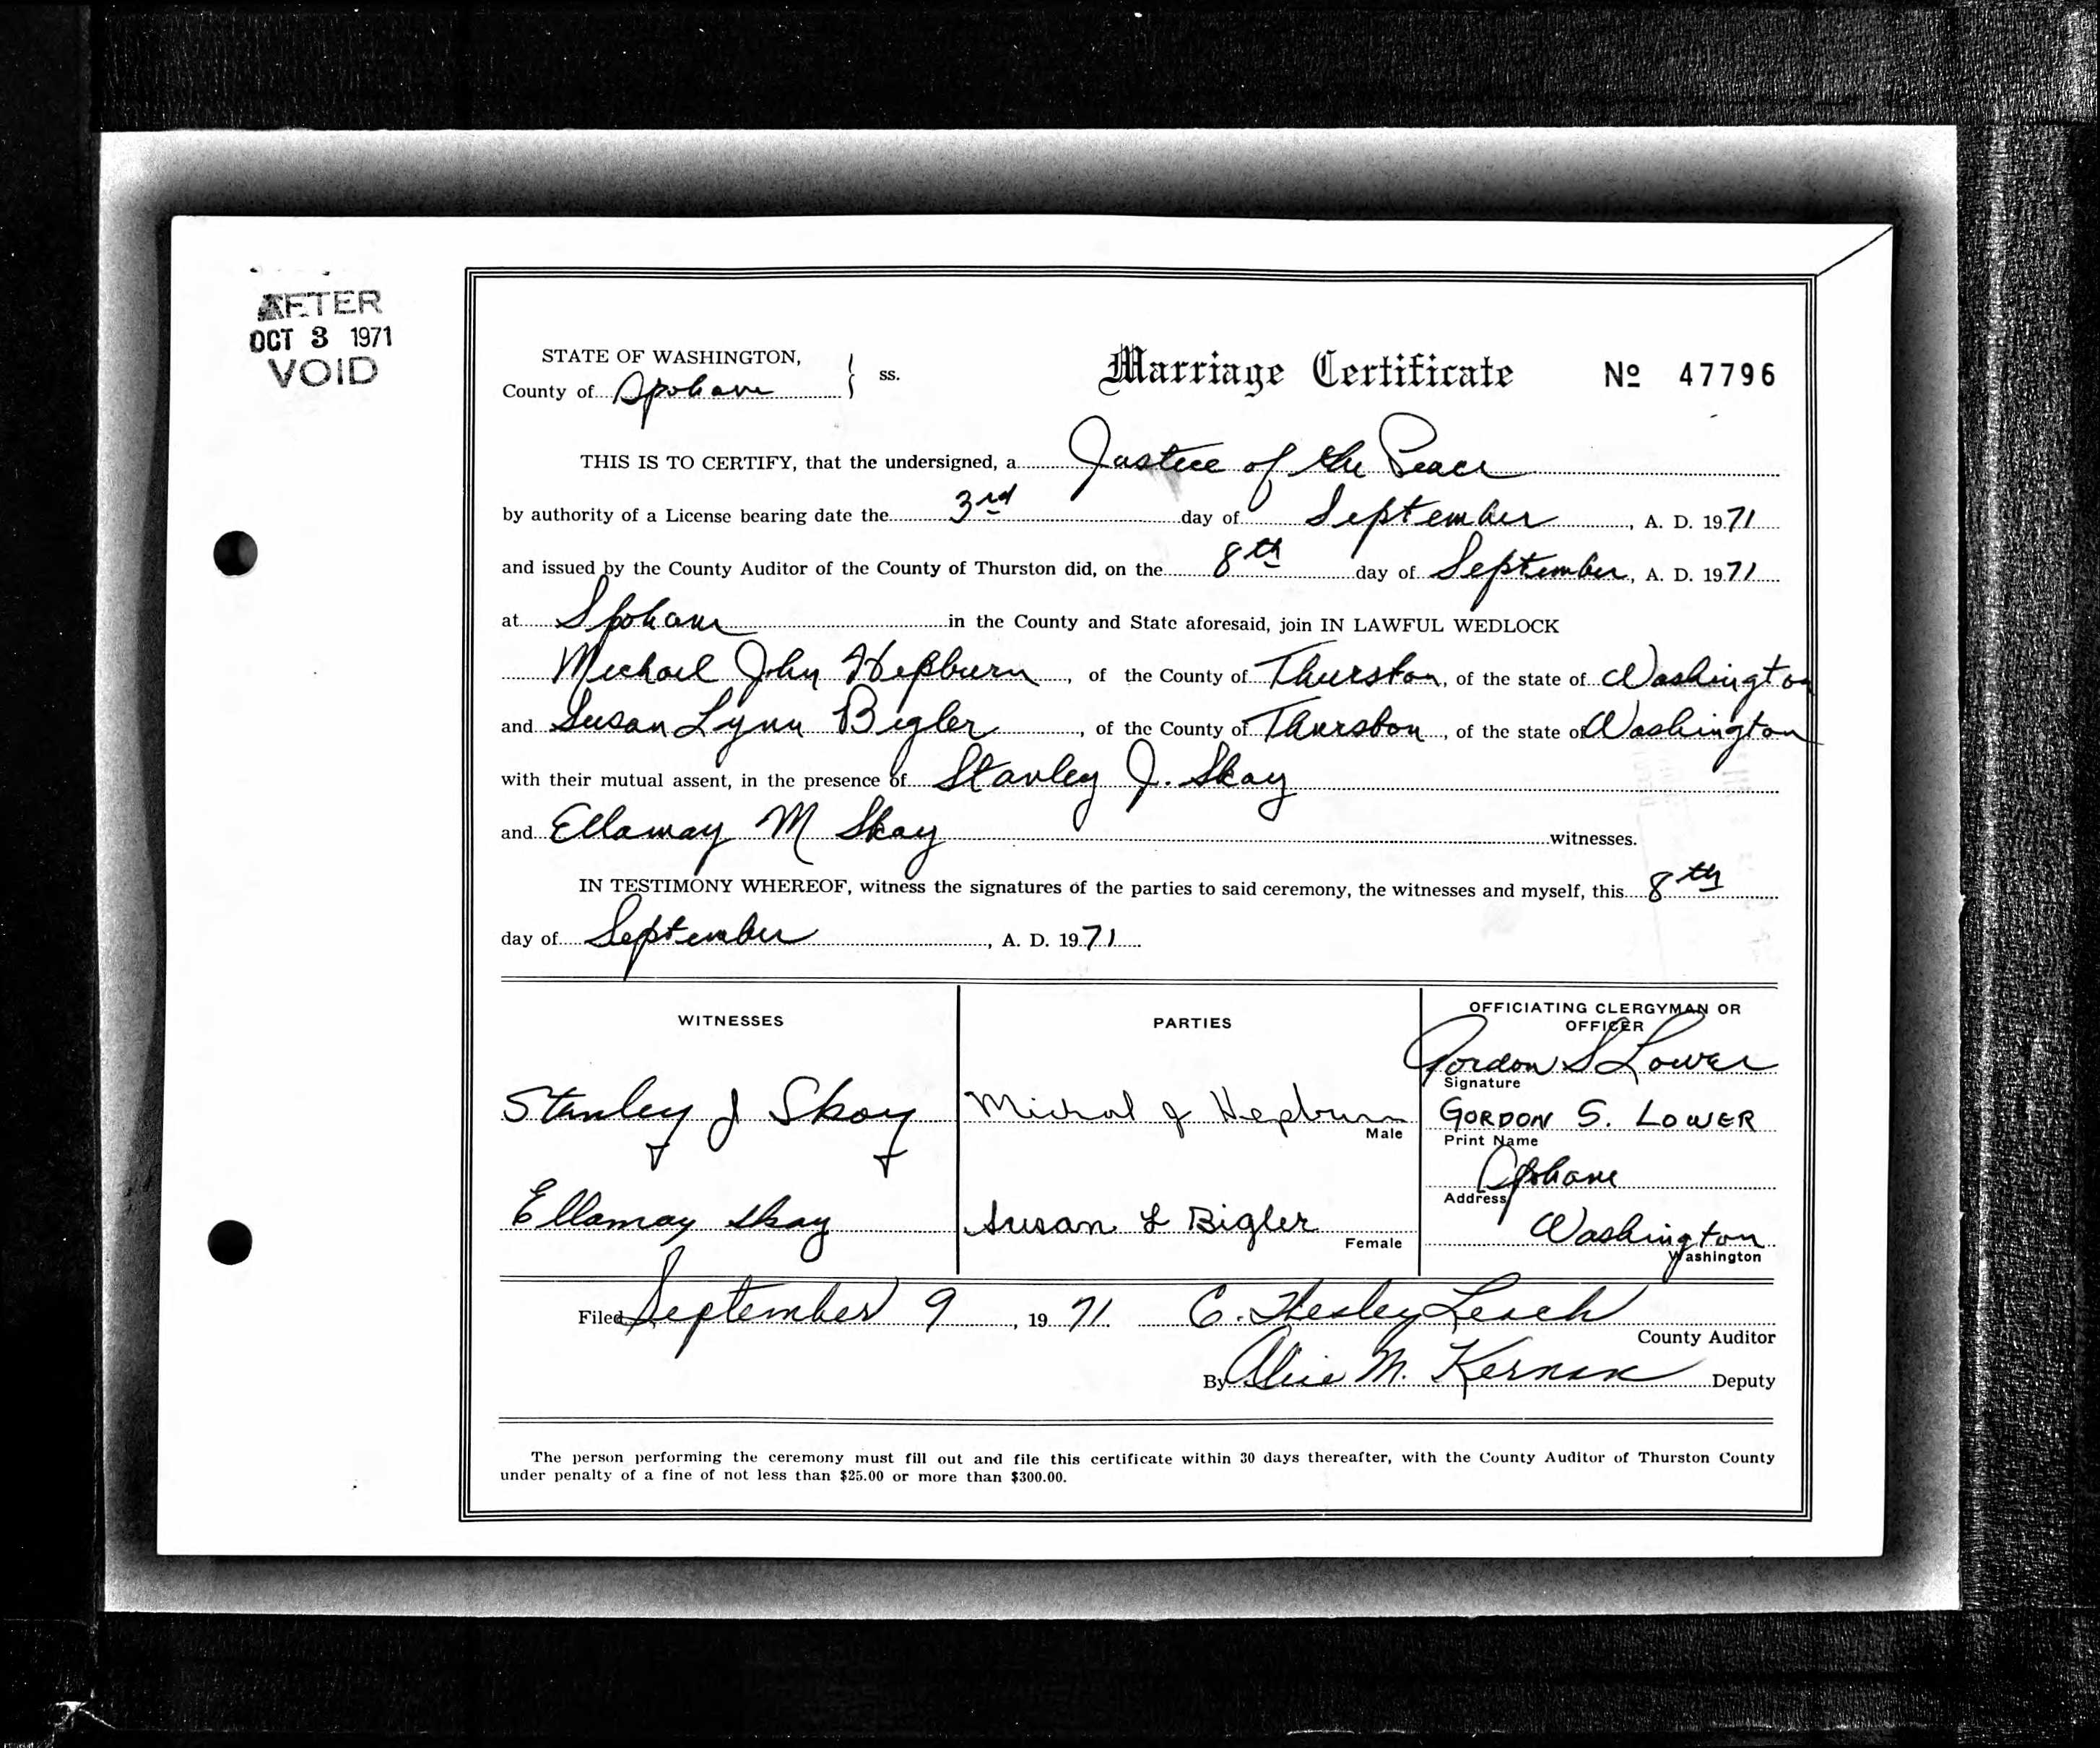 AFTER
OCT 3 1971
VOID
STATE OF WASHINGTON,
County of Spokane
ss.
Marriage Certificate
No 47796
THIS IS TO CERTIFY, that the undersigned, a Justice of the Peace
by authority of a License bearing date the 3rd day of September, A. D. 1971
and issued by the County Auditor of the County of Thurston did, on the 8th day of September, A. D. 1971
at Spokane in the County and State aforesaid, join IN LAWFUL WEDLOCK
Michael John Hepburn, of the County of Thurston, of the state of Washington
and Susan Lynn Bigler, of the County of Thurston, of the state of Washington
with their mutual assent, in the presence of Stanley J. Skay
and Ellamay M Skay witnesses.
IN TESTIMONY WHEREOF, witness the signatures of the parties to said ceremony, the witnesses and myself, this 8th
day of September, A. D. 1971
WITNESSES
Stanley J Skay
Ellamay Skay
PARTIES
Michal J Hepburn
Male
Susan L Bigler
Female
OFFICIATING CLERGYMAN OR
OFFICER
Gordon S Lower
Signature
GORDON S. LOWER
Print Name
Spokane
Address
Washington
Washington
Filed September 9, 1971. C. Wesley Leach
County Auditor
By Alice M. Kernan Deputy
The person performing the ceremony must fill out and file this certificate within 30 days thereafter, with the County Auditor of Thurston County
under penalty of a fine of not less than $25.00 or more than $300.00.